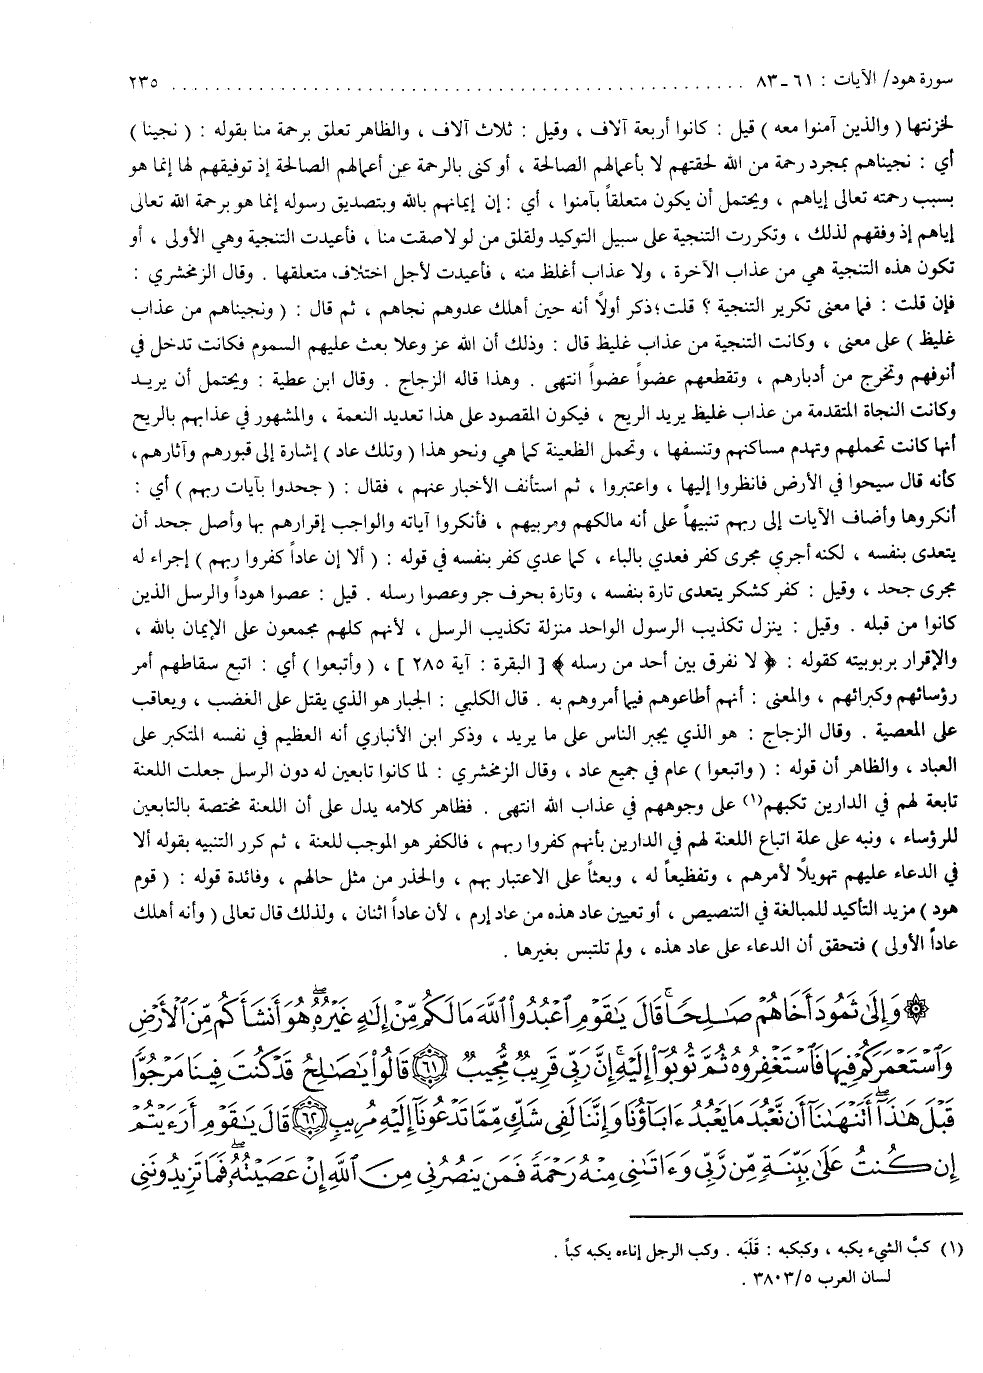 سورة هود/ الآيات : ٦١ ـ ٨٣ ........................................................ ٢٣٥
لخزنتها ( والذين آمنوا معه ) قيل : كانوا أربعة آلاف ، وقيل : ثلاث آلاف ، والظاهر تعلق برحمة منا بقوله : ( نجينا )
أي : نجيناهم بمجرد رحمة من الله لحقتهم لا بأعمالهم الصالحة ، أو كنى بالرحمة عن أعمالهم الصالحة إذ توفيقهم لها إنما هو
بسبب رحمته تعالى إياهم ، ويحتمل أن يكون متعلقاً بآمنوا ، أي : إن إيمانهم بالله وبتصديق رسوله إنما هو برحمة الله تعالى
إياهم إذ وفقهم لذلك ، وتكررت التنجية على سبيل التوكيد ولقلق من لو لاصقت منا ، فأعيدت التنجية وهي الأولى ، أو
تكون هذه التنجية هي من عذاب الآخرة ، ولا عذاب أغلظ منه ، فأعيدت لأجل اختلاف متعلقها . وقال الزمخشري :
فإن قلت : فما معنى تكرير التنجية ؟ قلت؛ ذكر أولاً أنه حين أهلك عدوهم نجاهم ، ثم قال : ( ونجيناهم من عذاب
غليظ ) على معنى ، وكانت التنجية من عذاب غليظ قال : وذلك أن الله عز وعلا بعث عليهم السموم فكانت تدخل في
أنوفهم وتخرج من أدبارهم ، وتقطعهم عضواً عضواً انتهى . وهذا قاله الزجاج . وقال ابن عطية : ويحتمل أن يريـد
وكانت النجاة المتقدمة من عذاب غليظ يريد الريح ، فيكون المقصود على هذا تعديد النعمة ، والمشهور في عذابهم بالريح
أنها كانت تحملهم وتهدم مساكنهم وتنسفها ، وتحمل الظعينة كما هي ونحو هذا ( وتلك عاد ) إشارة إلى قبورهم وآثارهم،
كأنه قال سيحوا في الأرض فانظروا إليها ، واعتبروا ، ثم استأنف الأخبار عنهم ، فقال : ( جحدوا بآيات ربهم ) أي :
أنكروها وأضاف الآيات إلى ربهم تنبيهاً على أنه مالكهم ومربيهم ، فأنكروا آياته والواجب إقرارهم بها وأصل جحد أن
يتعدى بنفسه ، لكنه أجري مجرى كفر فعدي بالباء ، كما عدي كفر بنفسه في قوله : ( ألا إن عاداً كفروا ربهم ) إجراء له
مجرى جحد ، وقيل : كفر كشكر يتعدى تارة بنفسه ، وتارة بحرف جر وعصوا رسله . قيل : عصوا هوداً والرسل الذين
كانوا من قبله . وقيل : ينزل تكذيب الرسول الواحد منزلة تكذيب الرسل ، لأنهم كلهم مجمعون على الإيمان بالله ،
والإقرار بربوبيته كقوله : ﴿ لا نفرق بين أحد من رسله ﴾ [ البقرة : آية ٢٨٥ ] ، ( وأتبعوا ) أي : اتبع سقاطهم أمر
رؤسائهم وكبرائهم ، والمعنى : أنهم أطاعوهم فيما أمروهم به . قال الكلبي : الجبار هو الذي يقتل على الغضب ، ويعاقب
على المعصية . وقال الزجاج : هو الذي يجبر الناس على ما يريد ، وذكر ابن الأنباري أنه العظيم في نفسه المتكبر على
العباد ، والظاهر أن قوله : ( واتبعوا ) عام في جميع عاد ، وقال الزمخشري : لما كانوا تابعين له دون الرسل جعلت اللعنة
تابعة لهم في الدارين تكبهم(١) على وجوههم في عذاب الله انتهى . فظاهر كلامه يدل على أن اللعنة مختصة بالتابعين
للرؤساء ، ونبه على علة اتباع اللعنة لهم في الدارين بأنهم كفروا ربهم ، فالكفر هو الموجب للعنة ، ثم كرر التنبيه بقوله ألا
في الدعاء عليهم تهويلاً لأمرهم ، وتفظيعاً له ، وبعثاً على الاعتبار بهم ، والحذر من مثل حالهم ، وفائدة قوله : ( قوم
هود ) مزيد التأكيد للمبالغة في التنصيص ، أو تعيين عاد هذه من عاد إرم ، لأن عاداً اثنان ، ولذلك قال تعالى ( وأنه أهلك
عاداً الأولى ) فتحقق أن الدعاء على عاد هذه ، ولم تلتبس بغيرها .
۞ وَإِلَىٰ ثَمُودَ أَخَاهُمْ صَٰلِحًا ۚ قَالَ يَٰقَوْمِ ٱعْبُدُوا۟ ٱللَّهَ مَا لَكُم مِّنْ إِلَٰهٍ غَيْرُهُۥ ۖ هُوَ أَنشَأَكُم مِّنَ ٱلْأَرْضِ
وَٱسْتَعْمَرَكُمْ فِيهَا فَٱسْتَغْفِرُوهُ ثُمَّ تُوبُوٓا۟ إِلَيْهِ ۚ إِنَّ رَبِّى قَرِيبٌ مُّجِيبٌ ٦١ قَالُوا۟ يَٰصَٰلِحُ قَدْ كُنتَ فِينَا مَرْجُوًّا
قَبْلَ هَٰذَآ ۖ أَتَنْهَىٰنَآ أَن نَّعْبُدَ مَا يَعْبُدُ ءَابَآؤُنَا وَإِنَّنَا لَفِى شَكٍّ مِّمَّا تَدْعُونَآ إِلَيْهِ مُرِيبٍ ٦٢ قَالَ يَٰقَوْمِ أَرَءَيْتُمْ
إِن كُنتُ عَلَىٰ بَيِّنَةٍ مِّن رَّبِّى وَءَاتَىٰنِى مِنْهُ رَحْمَةً فَمَن يَنصُرُنِى مِنَ ٱللَّهِ إِنْ عَصَيْتُهُۥ ۖ فَمَا تَزِيدُونَنِى
(١) كبَّ الشيء يكبه ، وكبكبه : قَلَبَه . وكب الرجل إناءه يكبه كباً .
لسان العرب ٣٨٠٣/٥ .